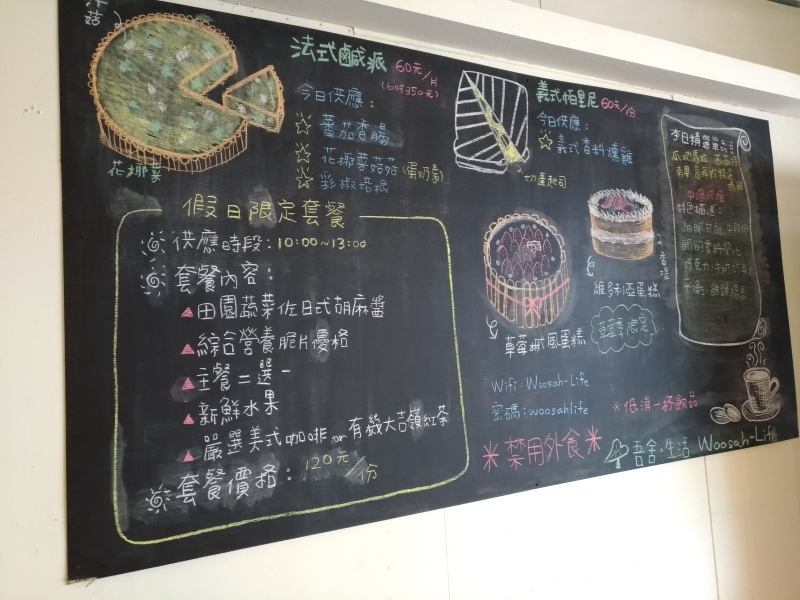 菇
花椰菜
法式鹹派 60元/片
(6吋350元)
今日供應：
番茄香腸
花椰蘑菇菇 (蛋奶素)
彩椒培根
義式帕里尼 60元/份
今日供應：
義式香料燻雞
切達起司
假日限定套餐
供應時段：10:00~13:00
套餐內容：
田園蔬菜佐日式胡麻醬
綜合營養脆片優格
主餐二選一
新鮮水果
嚴選美式咖啡or有機大吉嶺紅茶
套餐價格：120元/份
草莓戚風蛋糕
維多利亞蛋糕
草莓季限定
Wifi：Woosah-Life
密碼：woosahlife
※低消一杯飲品
※禁用外食※
吾舍·生活 Woosah-Life
本日精選單品
瓜地馬拉
特色描述：